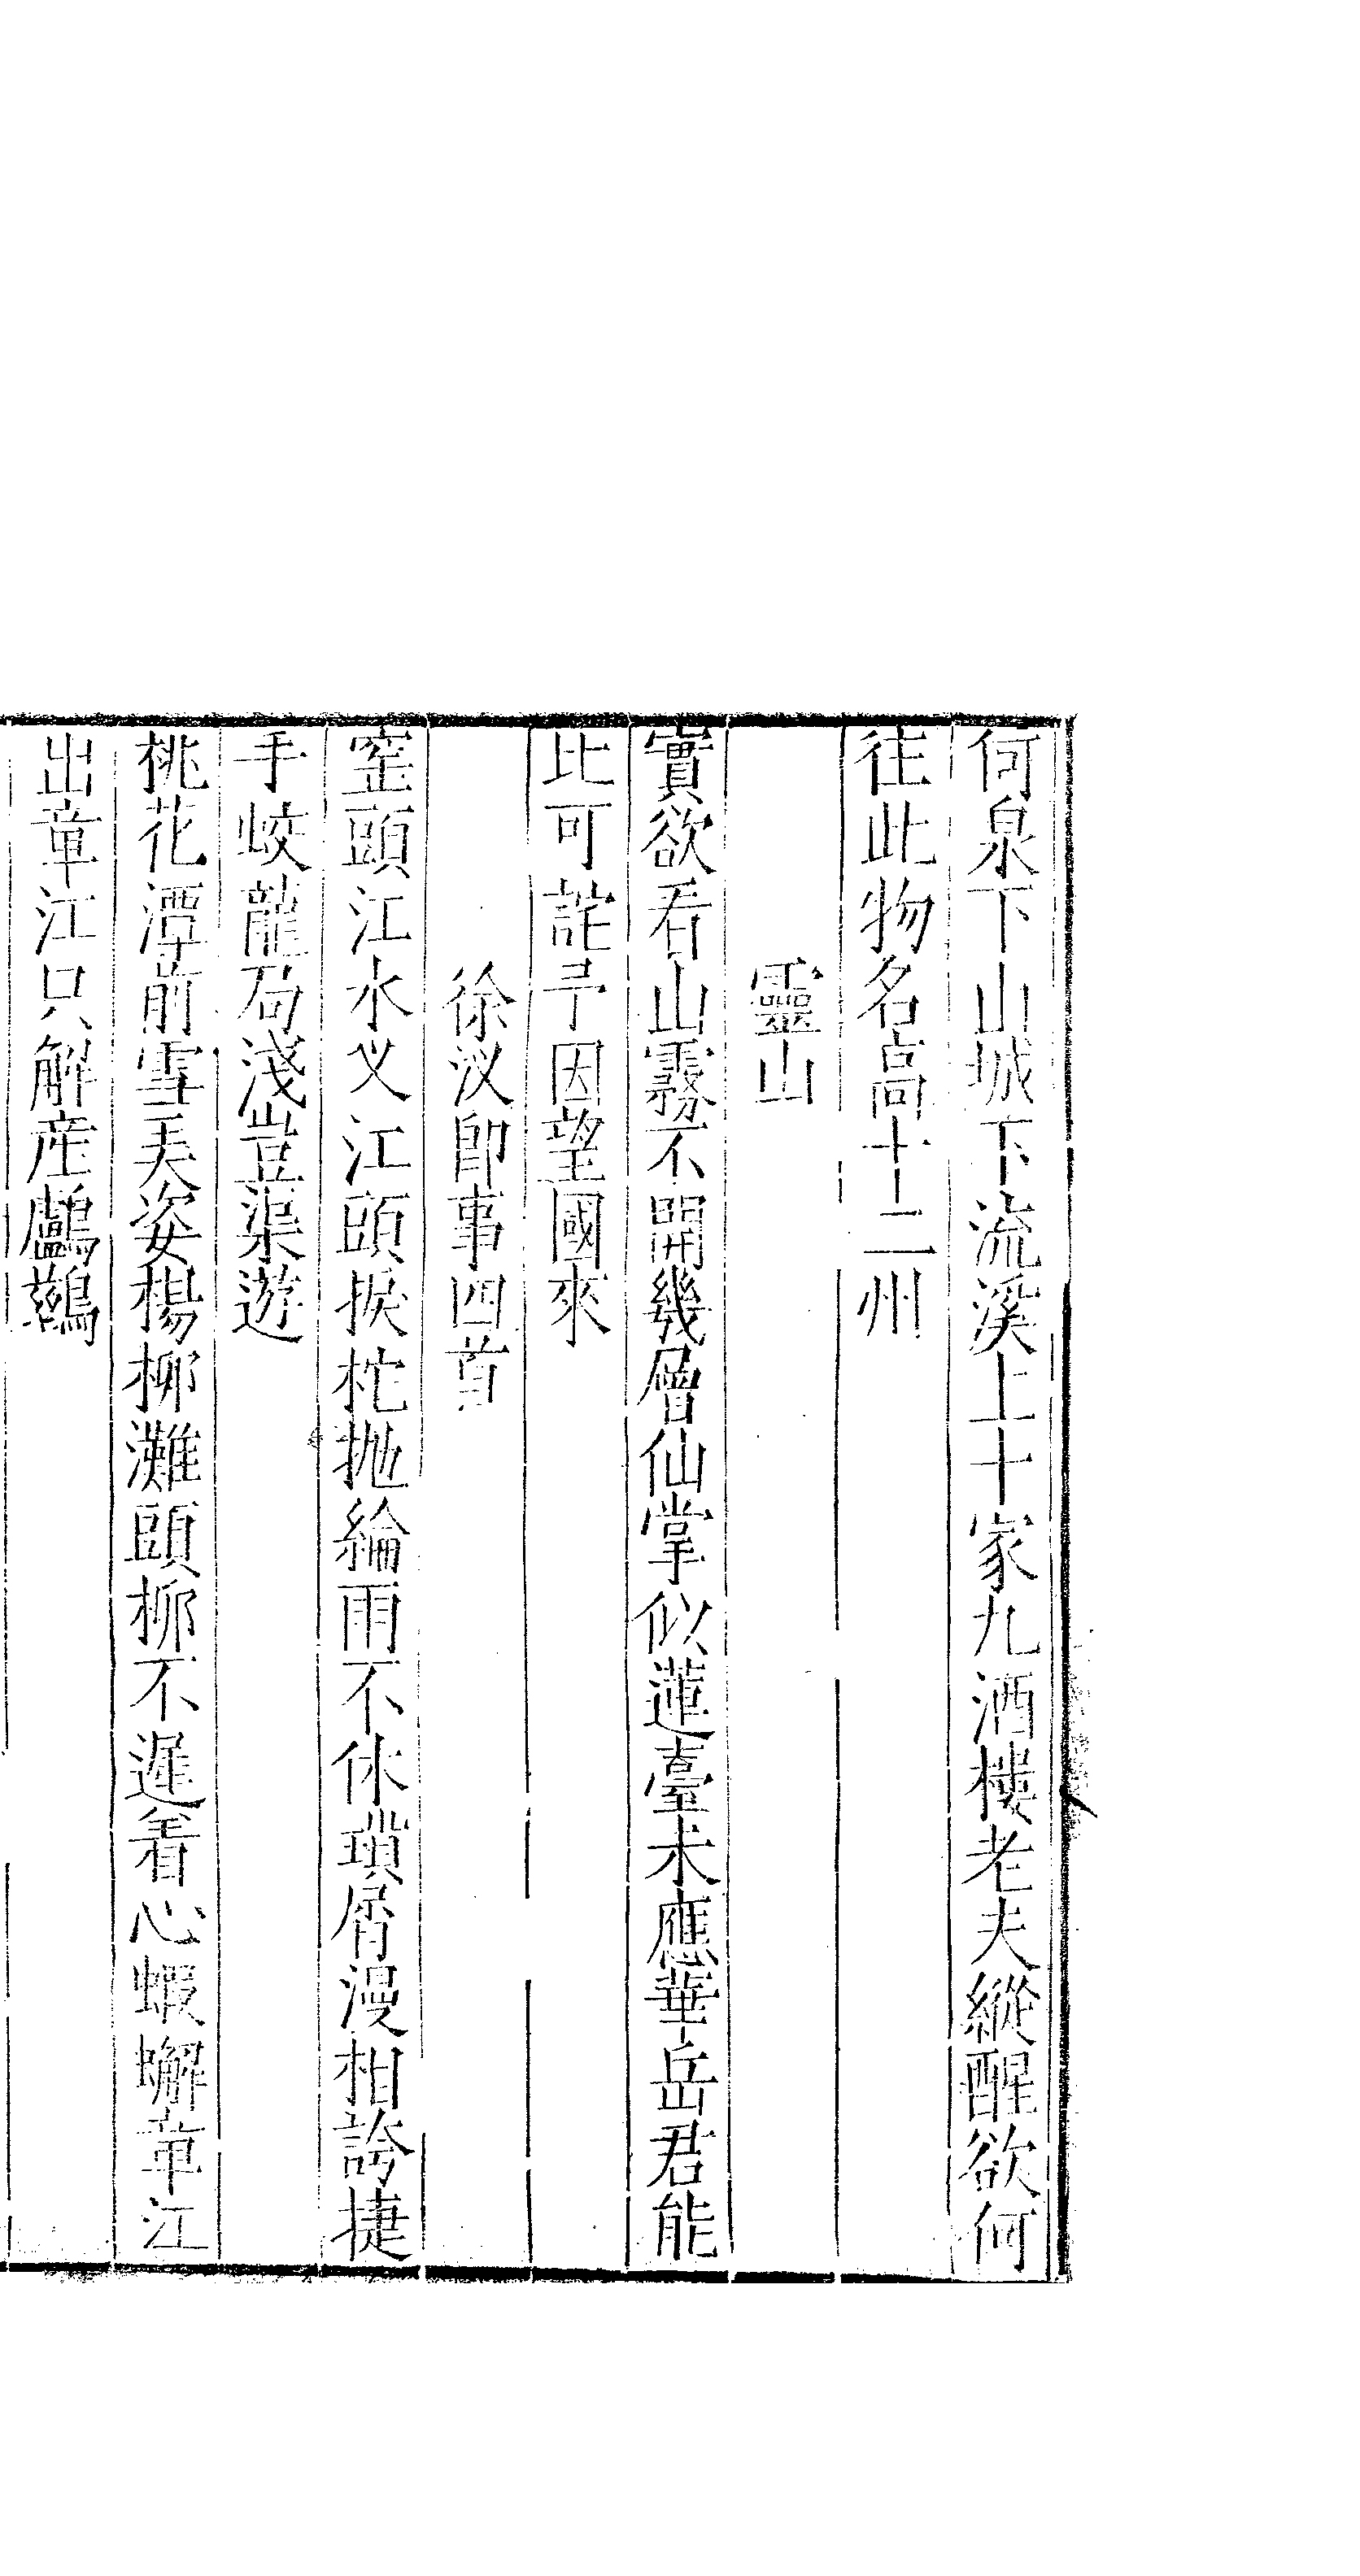 何泉下山城下流溪上十家九酒樓老夫縱醒欲何
往此物名高十二州
靈山
實欲看山霧不開幾層仙掌似蓮臺未應華岳君能
比可詫予因望國來
徐汊即事四首
窒頭江水乂江頭捩柁抛綸雨不休瑣屑漫相誇捷
手蛟龍局淺豈渠遊
桃花潭前雪美姿楊柳灘頭柳不遲着心蝦蠏章江
出章江只解産鸕鷀